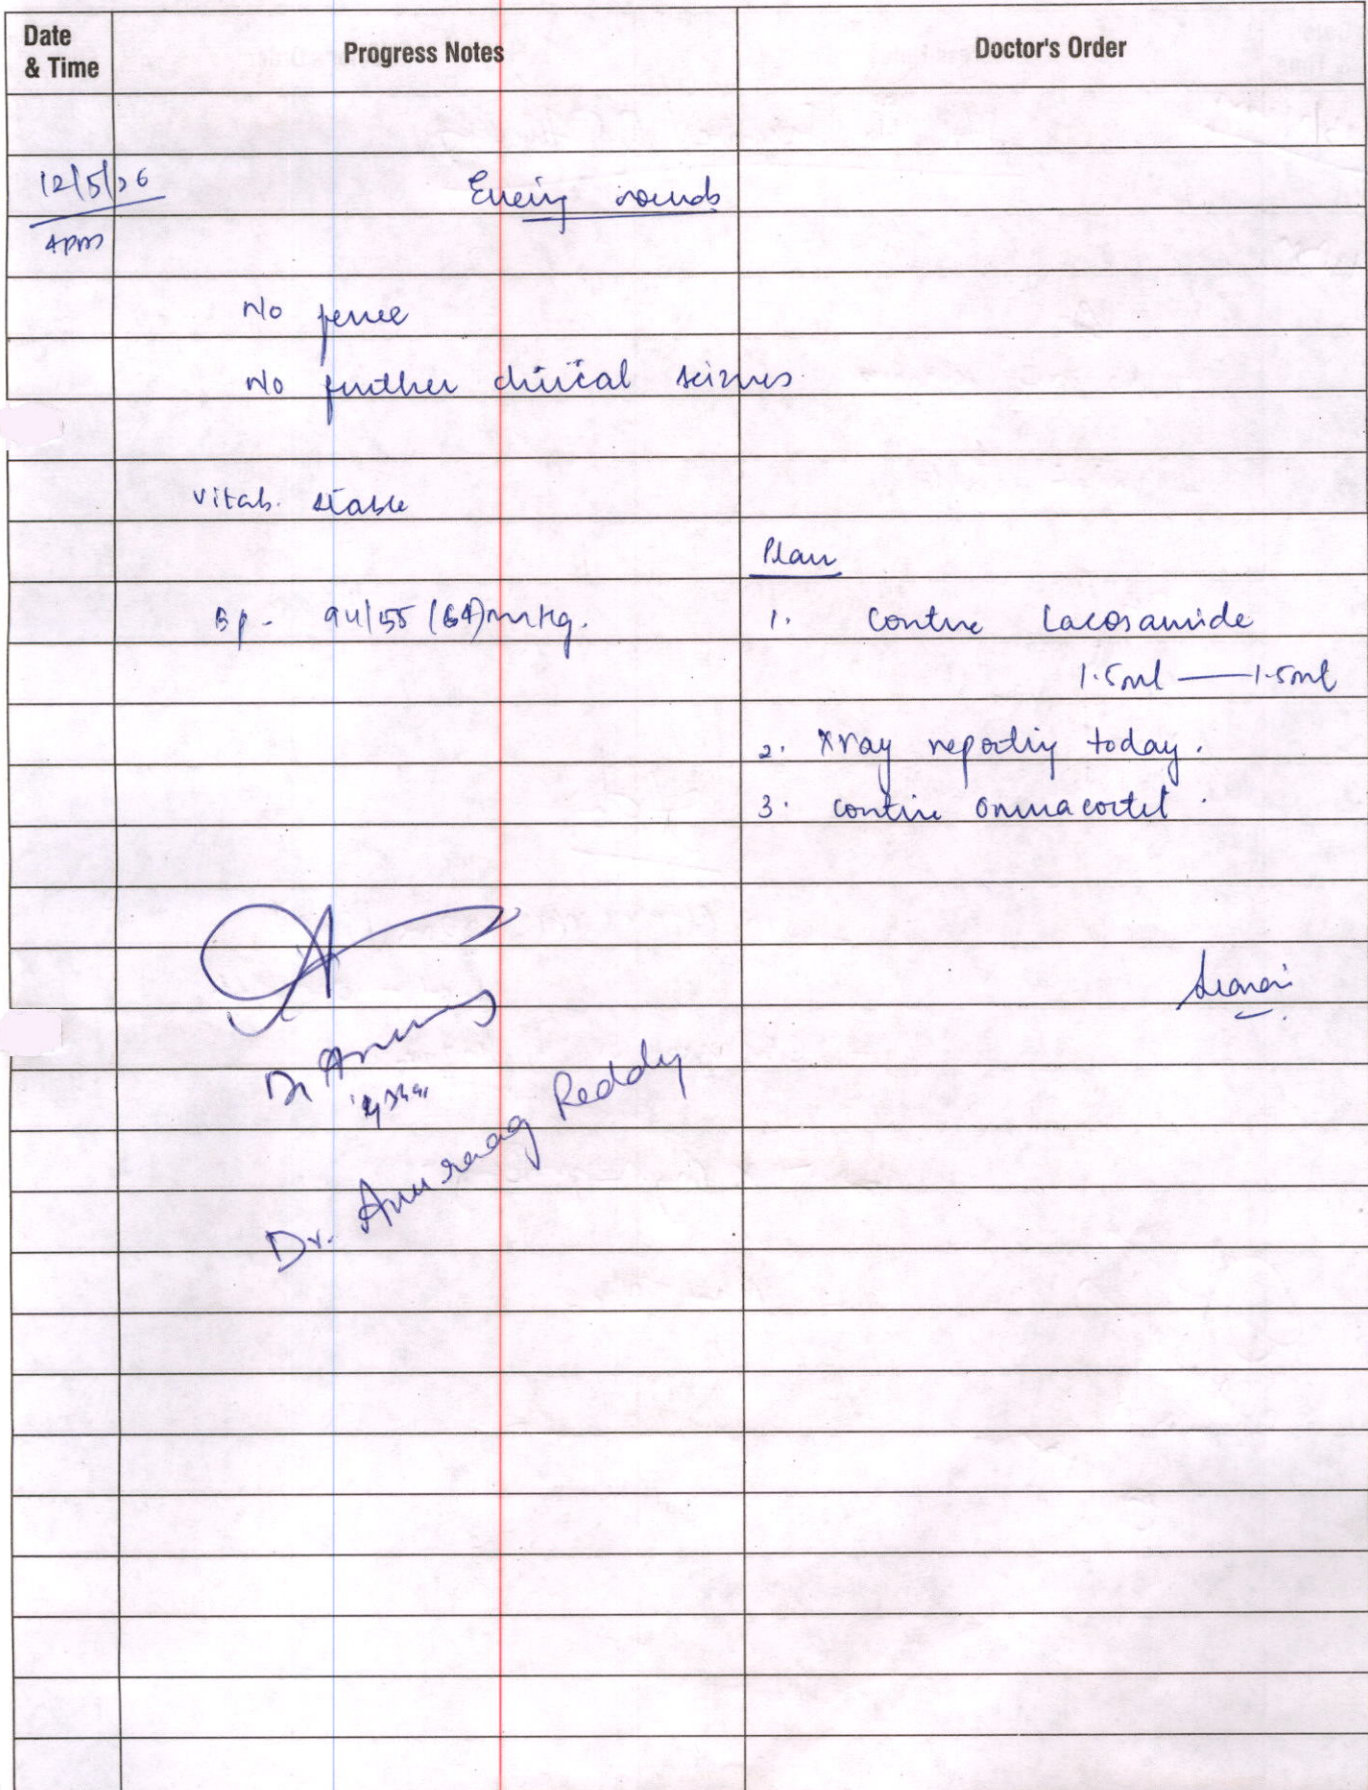 Date & Time
Progress Notes
Doctor's Order
12/5/26
4pm
Evening rounds
No fever
No further clinical seizures
Vitals. stable
Plan
BP - 94/55 (64) mmHg.
1. Continue Lacosamide
1.5ml — 1.5ml
2. Xray reporting today.
3. continue Omnacortil.
Dr
Dr. Anuraag Reddy